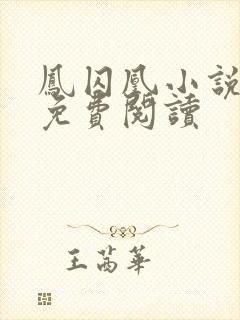 鳳囚凰小說
免費閱讀
王茜華